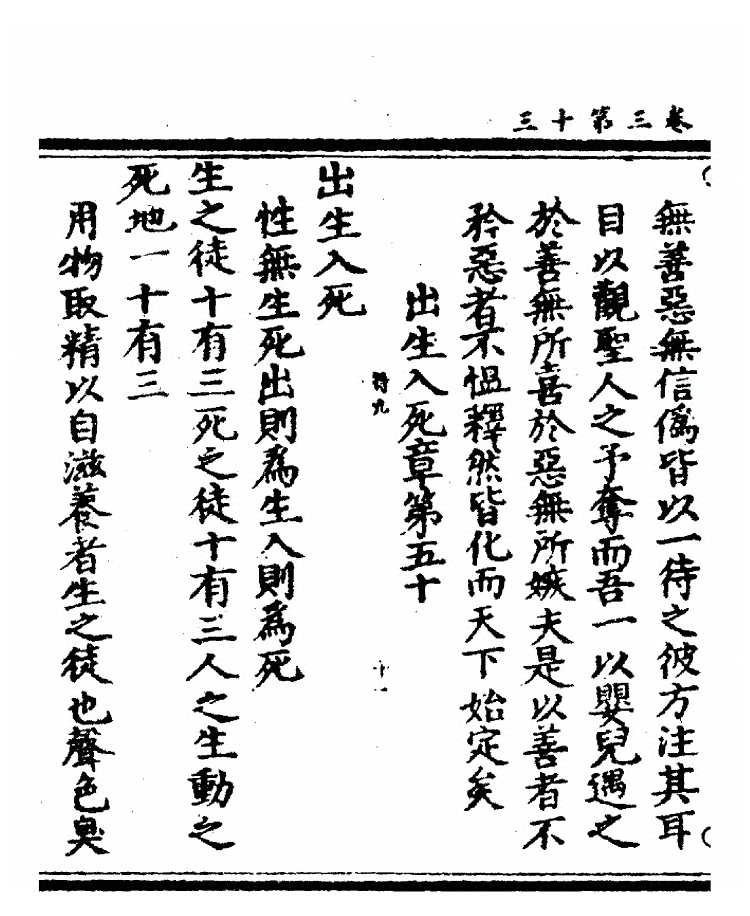 卷三第十三
無善惡無信僞皆以一待之彼方注其耳
目以觀聖人之予奪而吾一以嬰兒遇之
於善無所喜於惡無所嫉夫是以善者不
矜惡者不愠釋然皆化而天下始定矣
出生入死章第五十
符九
十一
出生入死
性無生死出則爲生入則爲死
生之徒十有三死之徒十有三人之生動之
死地一十有三
用物取精以自滋養者生之徒也聲色臭